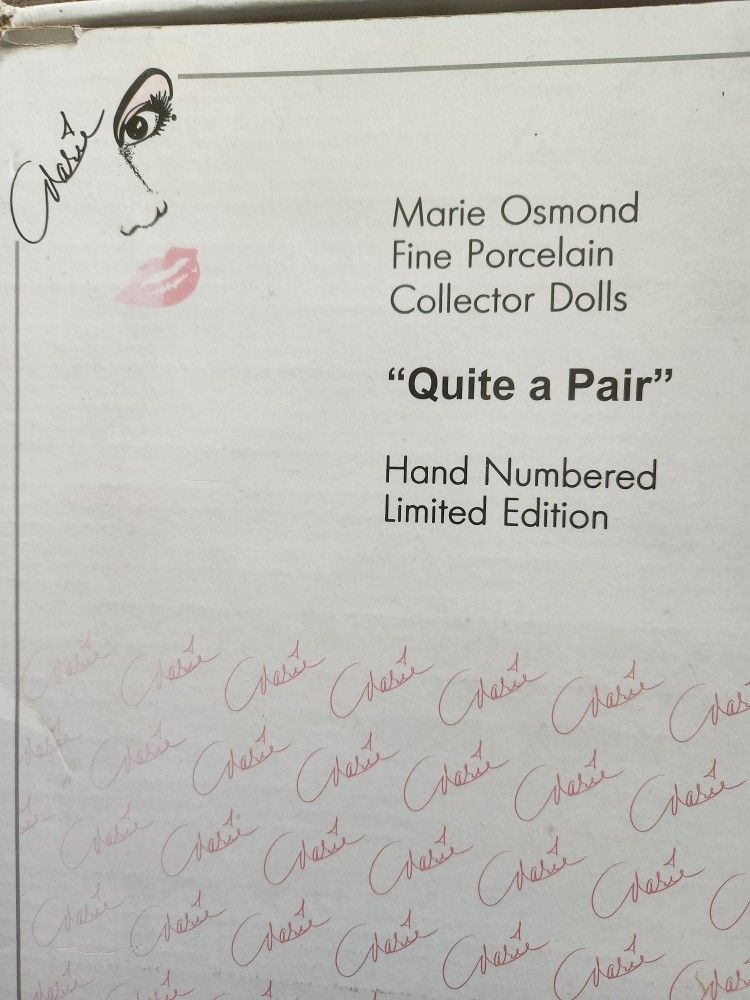 Marie
Marie Osmond
Fine Porcelain
Collector Dolls
“Quite a Pair”
Hand Numbered
Limited Edition
Marie Marie Marie Marie Marie Marie Marie
Marie Marie Marie Marie Marie Marie Marie
Marie Marie Marie Marie Marie Marie
Marie Marie Marie Marie Marie Marie